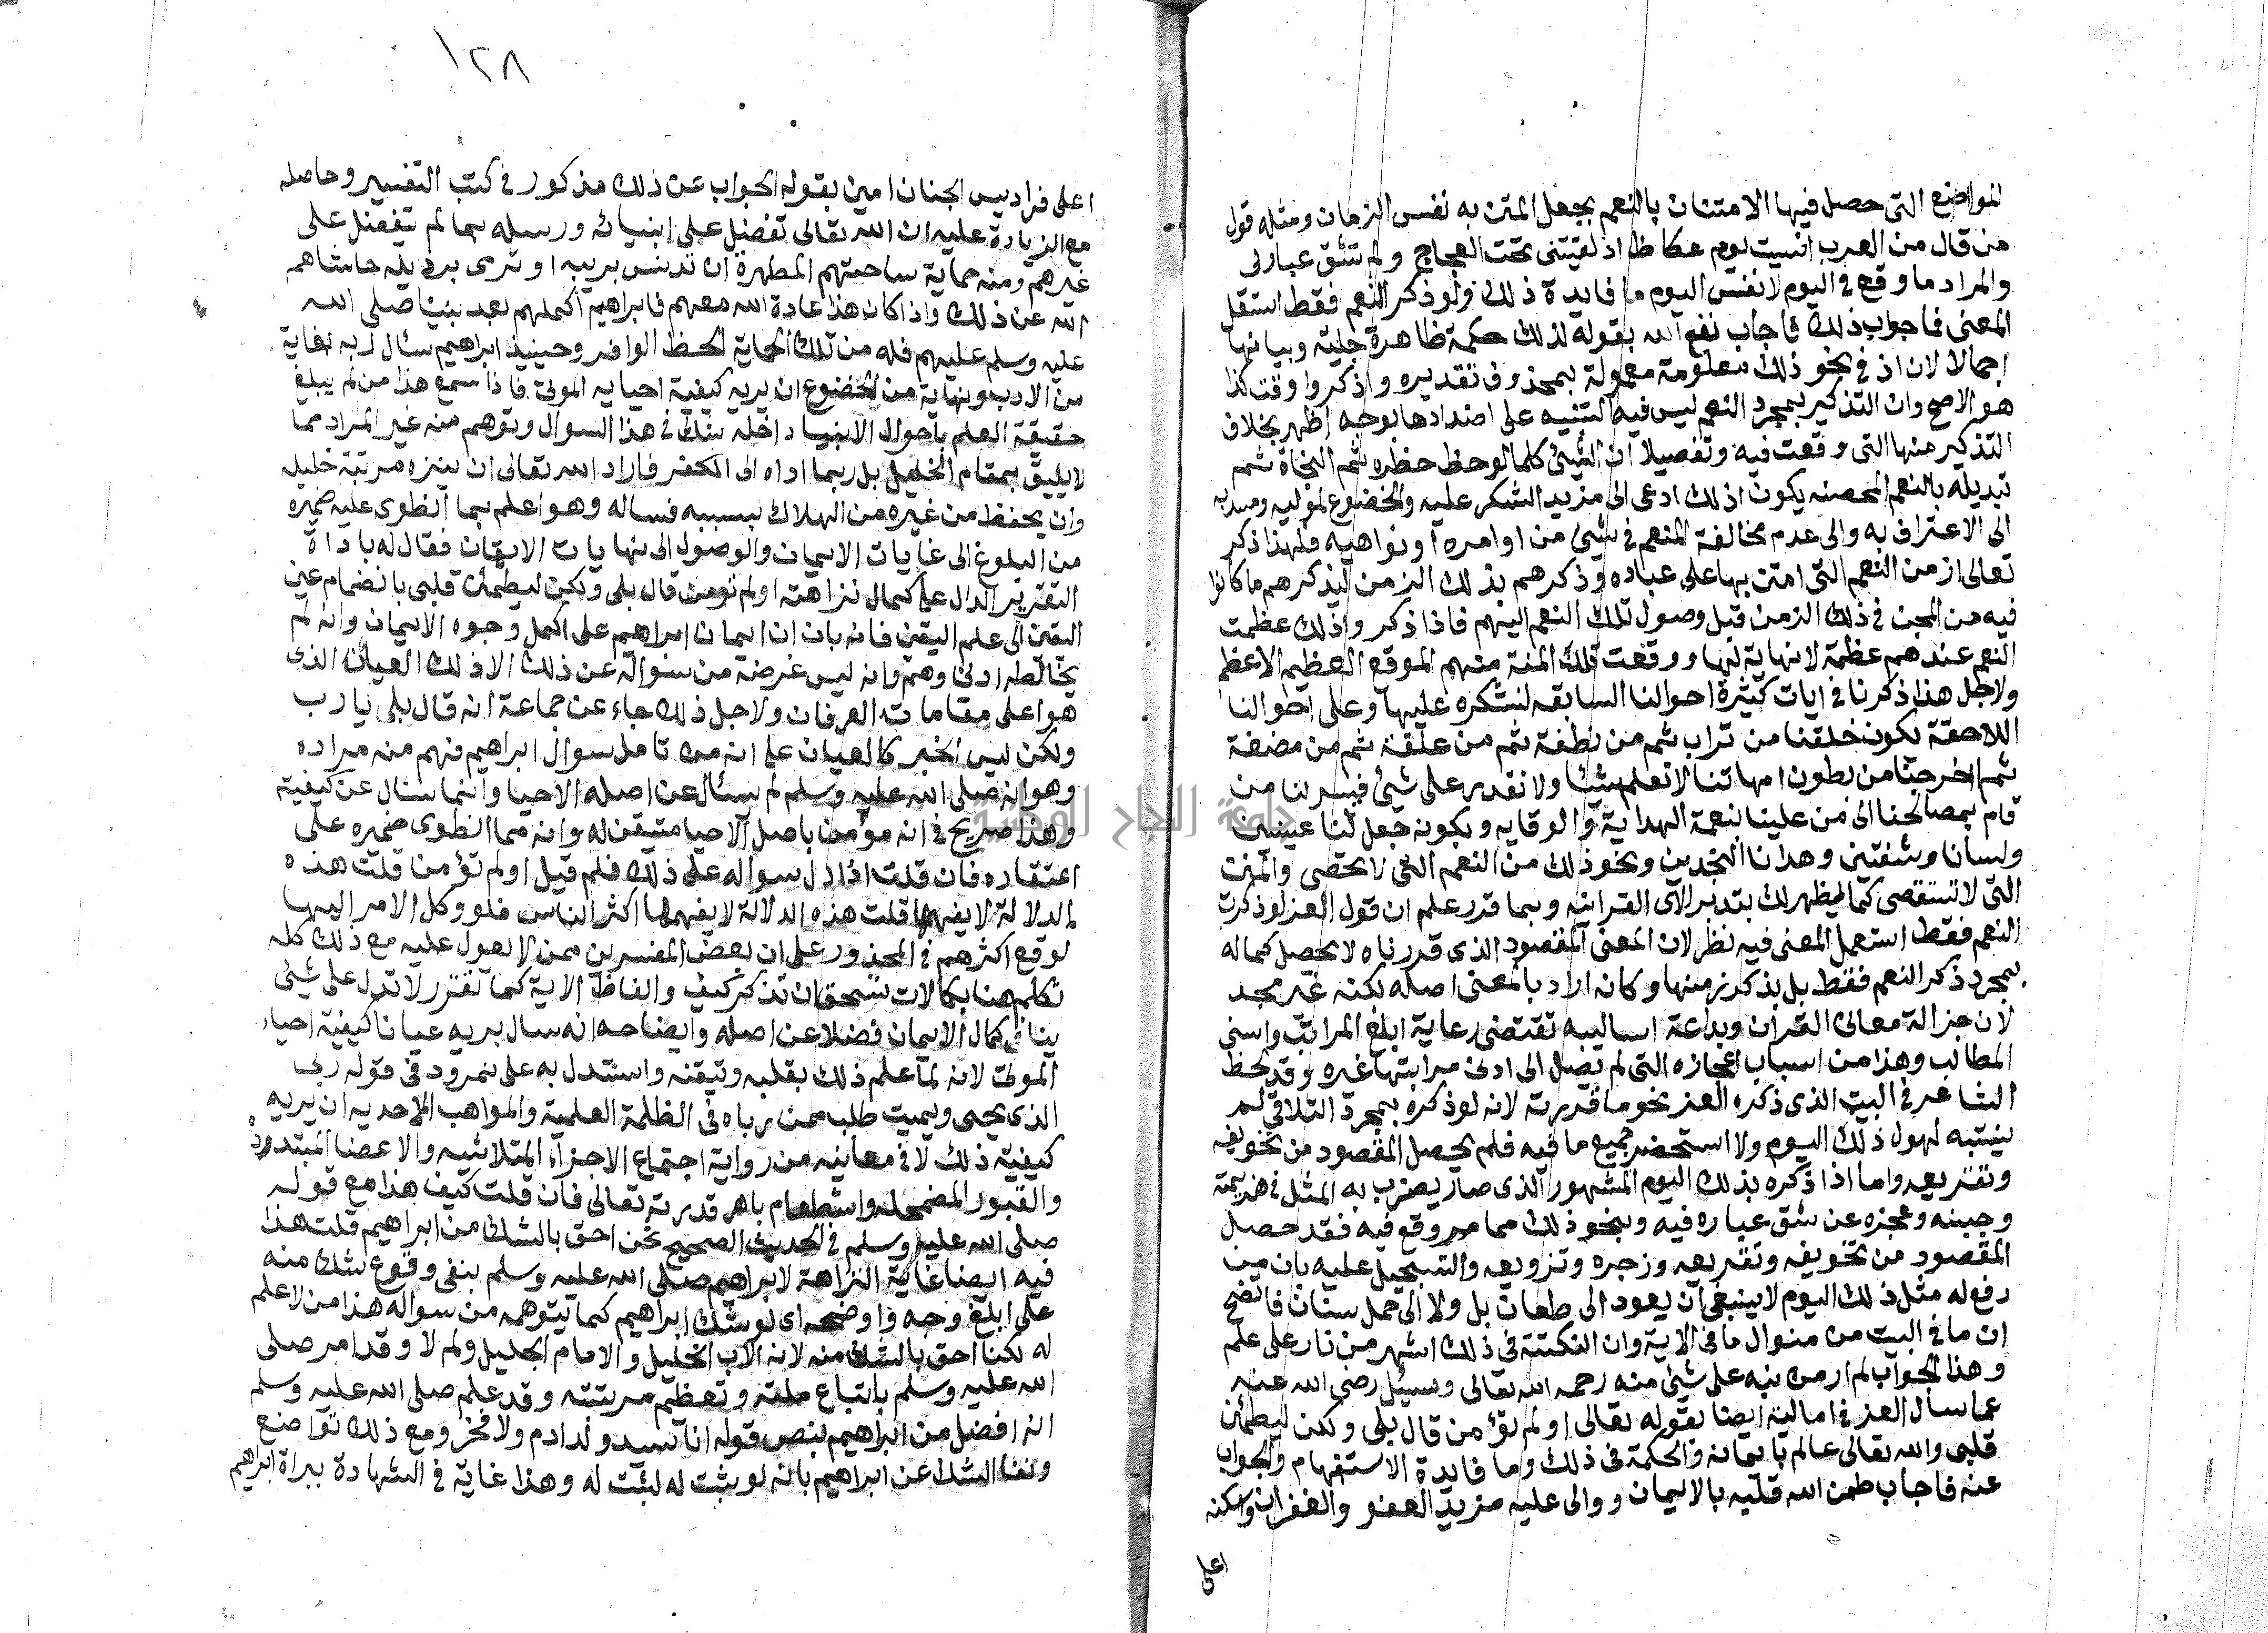 المواضع التى حصل فيها الامتنان بالنعم بجعل الممتن به نفس الزمان ومثله قول
من قال من العرب انسيت يوم عكاظ اذ لقيتنى تحت العجاج ولم تشق عبارى
والمراد ما وقع فى اليوم لا نفس اليوم ما فايدة ذلك ولو ذكر النعم فقط استقل
المعنى فما جواب ذلك فاجاب نفع الله بقوله لذلك حكمة ظاهرة جلية وبيانها
اجمالا لان اذ فى نحو ذلك معلومة معمولة بمحذوف تقديره واذكروا وقت كذا
هو الاصح وان التذكير بمجرد النعم ليس فيه التنبيه على اضدادها بوجه اظهر بخلاف
التذكير منها التى وقعت فيه وتفصيلا ان الشئ كلما لوحظ حظره ثم النجاة ثم
تبديله بالنعم المحصنه يكون اذ ذلك ادعى الى مزيد الشكر عليه والخضوع لموليه ومسديه
الى الاعتراف به والى عدم مخالفة المنعم فى شئ من اوامره او نواهيه فلهذا ذكر
تعالى ازمن النعم التى امتن بها على عباده وذكرهم بذلك الزمن ليذكرهم ما كانوا
فيه من المحن فى ذلك الزمن قبل وصول تلك النعم اليهم فاذا ذكروا ذلك عظمت
النعم عندهم عظمة لا نهاية لها ووقعت تلك المنة منهم الموقع العظيم الاعظم
ولاجل هذا ذكرنا فى ايات كثيرة احوالنا السابقه لنشكره عليها وعلى احوالنا
اللاحقة بكونه خلقنا من تراب ثم من نطفة ثم من علقة ثم من مضغة
ثم اخرجنا من بطون امهاتنا لا نعلم شيئا ولا نقدر على شئ فيسر لنا من
قام بمصالحنا الى من علينا بنعمة الهداية والوقايه وبكونه جعل لنا عينين
ولسانا وشفتين وهدانا النجدين ونحو ذلك من النعم التى لا تحصى والمنن
التى لا تستقصى كما يظهر لك بتدبر الآى القرانيه وبما قرر علم ان قول العز لو ذكرت
النعم فقط استعمل المعنى فيه نظر لان المعنى المقصود الذى قررناه لا يحصل كماله
بمجرد ذكر النعم فقط بل بذكر زمنها وكانه اراد بالمعنى اصله لكنه غير مجد
لان جزالة معانى القران وبداعة اساليبه تقتضى رعاية ابلغ المراتب واسنى
المطالب وهذا من اسباب اعجازه التى لم تصل الى ادنى مراتبها غيره وقد لحظ
الشاعر فى البيت الذى ذكره العز نحو ما قررته لانه لو ذكره بمجرد التلاقى لم
ينتبه لهول ذلك اليوم ولا استحضر جميع ما فيه فلم يحصل المقصود من تخويفه
وتقريعه واما اذا ذكره بذلك اليوم المشهور الذى صار يضرب به المثل فى هزيمة
وجبنه وعجزه عن شق عباره فيه وبنحو ذلك مما مر وقع فيه فقد حصل
المقصود من تخويفه وتقريعه وزجره وترويعه والتسجيل عليه بان من
رفع له مثل ذلك اليوم لا ينبغى ان يعود الى طعان بل ولا الى حمل سنان فاتضح
ان ما فى البيت من منوال ما فى الاية وان النكتة فى ذلك اشهر من نار على علم
وهذا الجواب لم ار من نبه على شئ منه رحمه الله تعالى وسئل رضى الله عنه
عما سأل العز فى اماليه ايضا بقوله تعالى اولم تؤمن قال بلى ولكن ليطمئن
قلبى والله تعالى عالم بايمانه والحكمة فى ذلك وما فايدة الاستفهام والجواب
عنه فاجاب طمن الله قلبه بالايمان ووالى عليه مزيد العفو والغفران واسكنه
اعلى
١٢٨
اعلى فراديس الجنان امين بقوله الجواب عن ذلك مذكور فى كتب التفسير وحاصله
مع الزيادة عليه ان الله تعالى تفضل على انبيائه ورسله بما لم يتفضل على
غيرهم ومنه حماية ساحتهم المطهرة ان تدنس بريبه او ترمى برذيله حاشاهم
الله عن ذلك واذا كان هذا عادة الله معهم فابراهيم اكملهم بعد نبينا صلى الله
عليه وسلم عليهم فله من تلك الحماية الحظ الوافر وحينيذ ابراهيم سئال ربه لغاية
من الادب ونهاية من الخضوع ان يريه كيفية احيايه الموتى فاذا سمع هذا من لم يبلغ
حقيقة العلم باحوال الانبياء داخله شك فى هذا السوال وتوهم منه غير المراد مما
لا يليق بمقام الخليل بل ربما اداه الى الكفر فاراد الله تعالى ان ينزه مرتبة خليله
وان يحفظ من غيره من الهلاك بسببه فساله وهو اعلم بما انطوى عليه ضميره
من البلوغ الى غايات الايمان والوصول الى نهايات الايقان فقال له باداة
التقرير الدال على كمال نزاهته اولم تومن قال بلى ولكن ليطمئن قلبى بانضمام عين
اليقين الى علم اليقين فانه بان ان ايمان ابراهيم على اكمل وجوه الايمان وانه لم
يخالطه ادنى وهم وانه ليس غرضه من سؤاله عن ذلك الا ذلك العيان الذى
هو اعلى مقامات العرفان ولاجل ذلك جاء عن جماعة انه قال بلى يا رب
ولكن ليس الخبر كالعيان على انه من تامل سوال ابراهيم فهم منه مراده
وهو انه صلى الله عليه وسلم لم يسئال عن اصله الاحيا وانما سئال عن كيفية
وهذا صريح فى انه مؤمن باصل الاحيا متيقن له وانه مما انطوى ضميره على
اعتقاده فان قلت اذا دل سواله على ذلك فلم قيل اولم تؤمن قلت هذه
الدلالة لا يفهمها قلت هذه الدلالة لا يفهمها اكثر الناس فلو وكل الامر اليها
لوقع اكثرهم فى المحذور على ان بعض المفسرين ممن لا يعول عليه مع ذلك كله
تكلم هنا بكمالات تستحق ان تذكر كيف والفاظ الاية كما تقرر لا تدل على شئ
ينافى كمال الايمان فضلا عن اصله وايضاحه انه سال يريه عيانا كيفية احياء
الموتى لانه لما علم ذلك بقلبه وتيقنه واستدل به على نمرود فى قوله ربى
الذى يحيى ويميت طلب ممن رباه فى الظلمة العلمية والمواهب الاحديه ان يريه
كيفية ذلك لا فى معاينه من رواية اجتماع الاجزآء المتلاشيه والاعضا المبتدوده
والقبور المضمحله واشطعام باهر قدرته تعالى فان قلت كيف هذا مع قوله
صلى الله عليه وسلم فى الحديث الصحيح نحن احق بالشك من ابراهيم قلت هذا
فيه ايضا غاية النزاهة لابراهيم صلى الله عليه وسلم بنفى وقوع شك منه
على ابلغ وجه واوضحه اى لو شك ابراهيم كما يتوهمه من سواله هذا من لا علم
له لكنا احق بالشك منه لانه الاب الخليل والامام الجليل ولم لا وقد امر صلى
الله عليه وسلم باتباع ملته وتعظيم مرتبته وقد علم صلى الله عليه وسلم
انه افضل من ابراهيم بنص قوله انا سيد ولد ادم ولا فخر ومع ذلك تواضع
ونفا الشك عن ابراهيم بانه لو ثبت له لثبت له وهذا غاية فى الشهادة ببراة ابراهيم
جامعة النجاح الوطنية